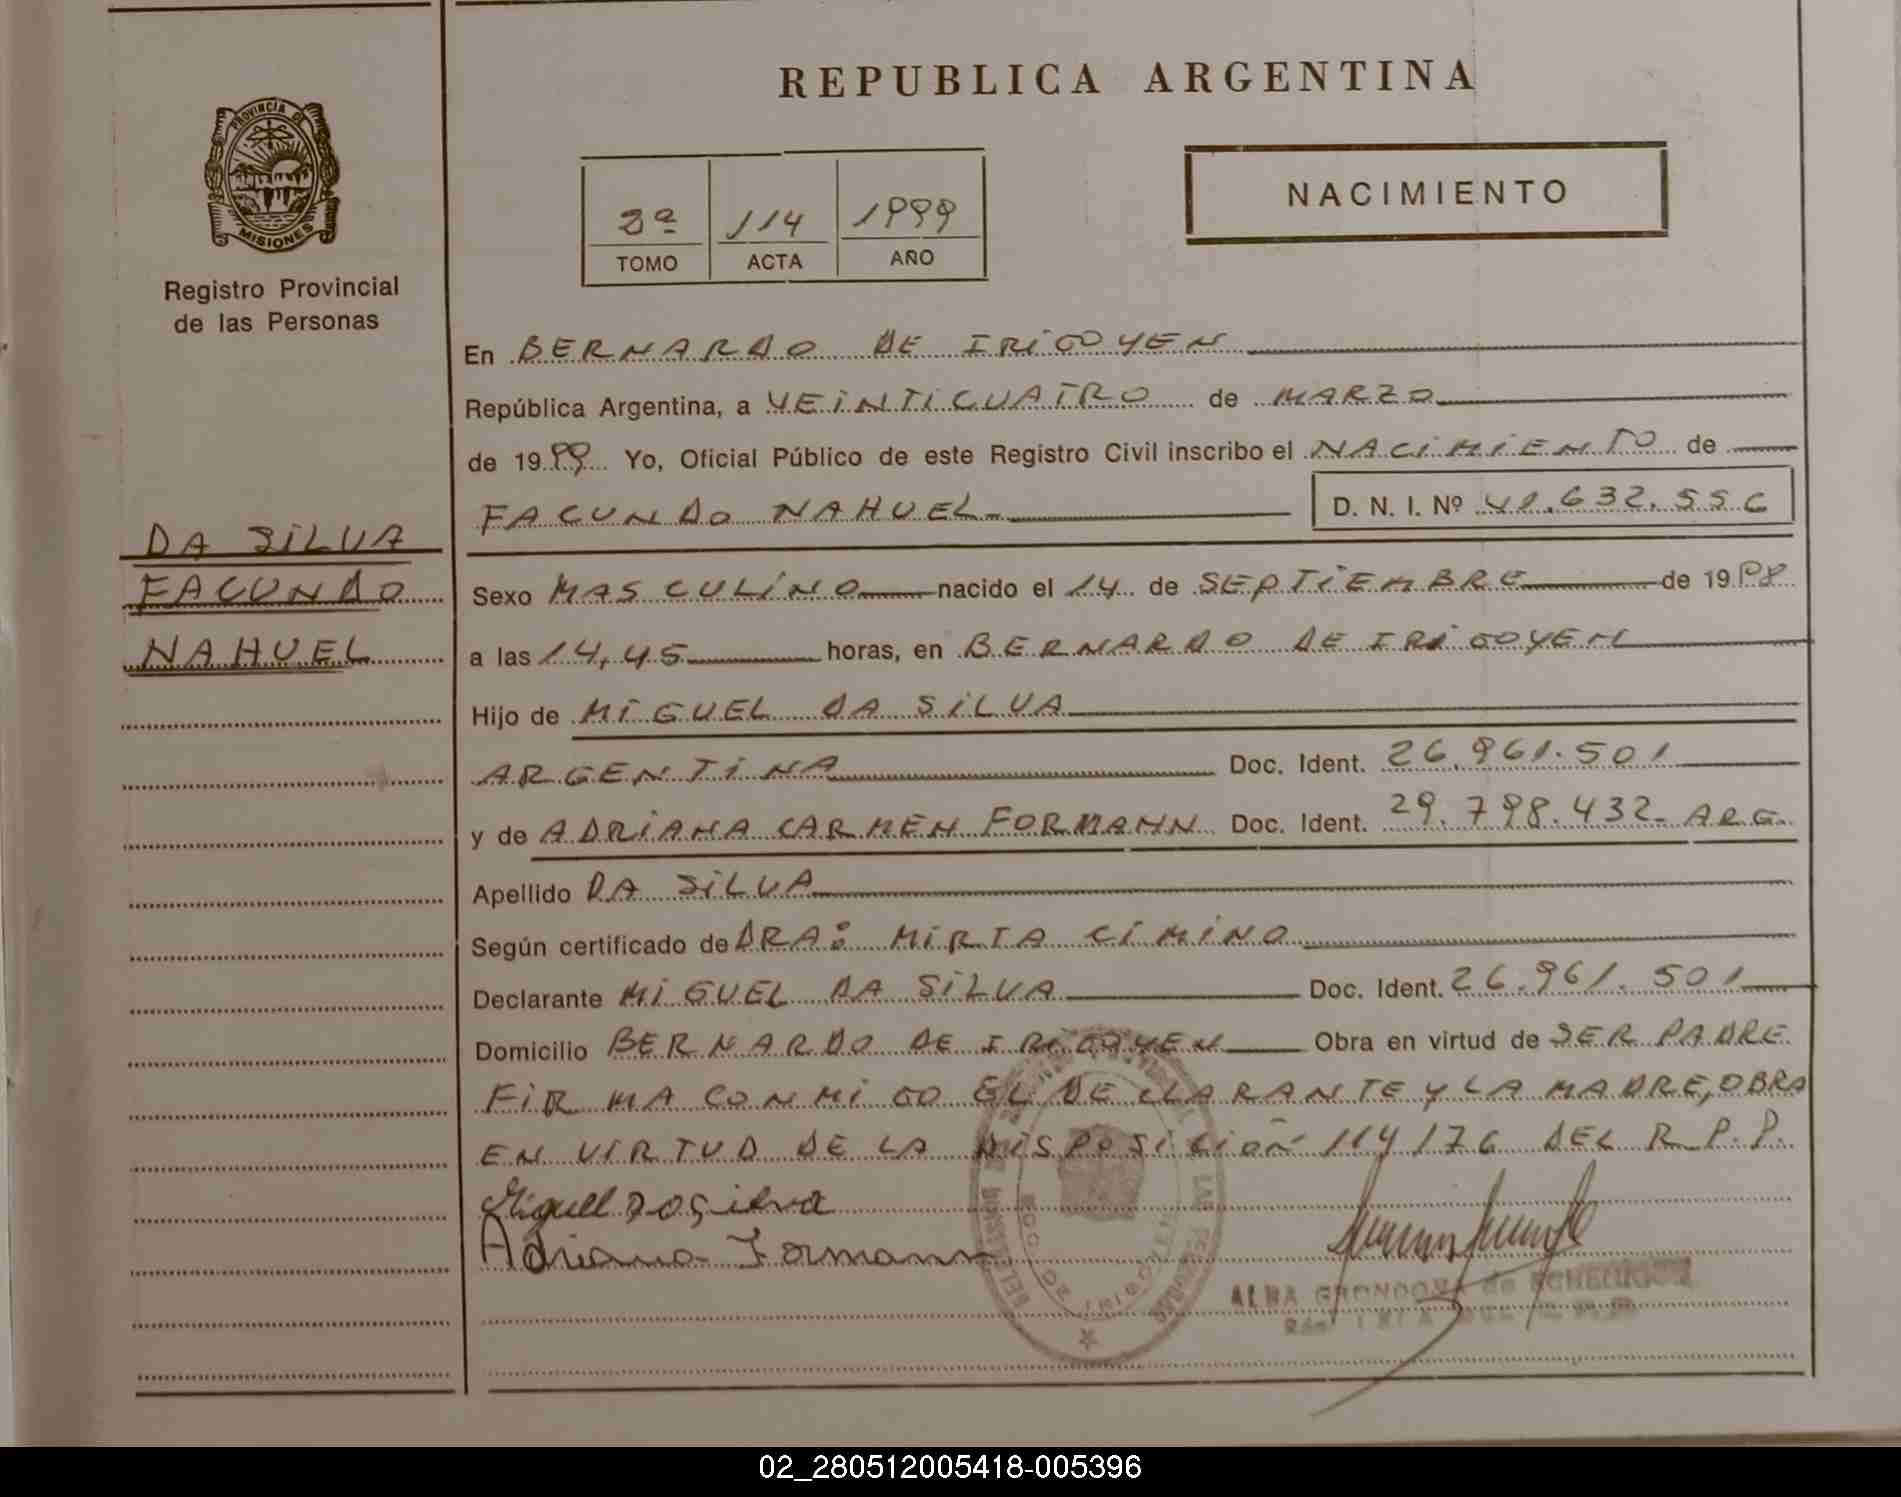 REPUBLICA ARGENTINA
PROVINCIA DE
MISIONES
Registro Provincial
de las Personas
NACIMIENTO
3ª 114 1999
TOMO ACTA AÑO
En BERNARDO DE IRIGOYEN
República Argentina, a VEINTICUATRO de MARZO
de 1999 Yo, Oficial Público de este Registro Civil inscribo el NACIMIENTO de
FACUNDO NAHUEL D. N. I. Nº 41.632.556
DA SILVA
FACUNDO
NAHUEL
Sexo MASCULINO nacido el 14 de SEPTIEMBRE de 1998
a las 14,45 horas, en BERNARDO DE IRIGOYEN
Hijo de MIGUEL DA SILVA
ARGENTINA Doc. Ident. 26.961.501
y de ADRIANA CARMEN FORMANN Doc. Ident. 29.798.432- ARG.
Apellido DA SILVA
Según certificado de DRA: MIRTA CIMINO
Declarante MIGUEL DA SILVA Doc. Ident. 26.961.501
Domicilio BERNARDO DE IRIGOYEN Obra en virtud de SER PADRE
FIRMA CONMIGO EL DECLARANTE Y LA MADRE, OBRA
EN VIRTUD DE LA DISPOSICIÓN 114/76 DEL R.P.P.
Miguel Da Silva
Adriana Formann
ALBA GRONDONA de ECHELUQUE
02_280512005418-005396